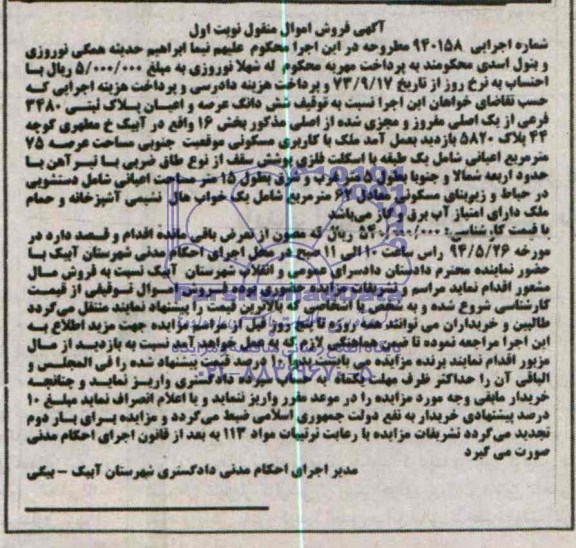 آگهی فروش اموال منقول نوبت اول
شماره اجرایی ۹۴۰۱۵۸ مطروحه در این اجرا محکوم علیهم نیما ابراهیم حدیثه همگی نوروزی
و بتول اسدی محکومند به پرداخت مهریه محکوم له شهلا نوروزی به مبلغ ۵/۰۰۰/۰۰۰ ریال با
احتساب به نرخ روز از تاریخ ۷۳/۹/۱۷ و پرداخت هزینه دادرسی و پرداخت هزینه اجرایی که
حسب تقاضای خواهان این اجرا نسبت به توقیف شش دانگ عرصه و اعیان پلاک ثبتی ۳۴۸۰
فرعی از یک اصلی مفروز و مجزی شده از اصلی مذکور بخش ۱۶ واقع در آبیک خ مطهری کوچه
۴۴ پلاک ۵۸۲۰ بازدید بعمل آمد ملک با کاربری مسکونی موقعیت جنوبی مساحت عرصه ۷۵
مترمربع اعیانی شامل یک طبقه با اسکلت فلزی پوشش سقف از نوع طاق ضربی با تیرآهن با
حدود اربعه شمالا و جنوبا بطول ۵ متر غرب و شرق بطول ۱۵ متر مساحت اعیانی شامل دستشویی
در حیاط و زیربنای مسکونی معادل ۶۷ مترمربع شامل یک خواب هال نشیمی آشپزخانه و حمام
ملک دارای امتیاز آب برق و گاز می‌باشد
با قیمت کارشناسی: ۵۴۰/۰۰۰/۰۰۰ ریال که مصون از تعرض باقی مانده اقدام و قصد دارد در
مورخه ۹۴/۵/۲۶ راس ساعت ۱۰ الی ۱۱ صبح در محل اجرای احکام مدنی شهرستان آبیک با
حضور نماینده محترم دادستان دادسرای عمومی و انقلاب شهرستان آبیک نسبت به فروش مال
مشعور اقدام نماید مراسم و تشریفات مزایده حضوری بوده فروش اموال توقیفی از قیمت
کارشناسی شروع شده و به شخص یا اشخاصی که بالاترین قیمت را پیشنهاد نمایند منتقل می‌گردد
طالبین و خریداران می توانند همه روزه تا پنج روز قبل از موعد مزایده جهت مزید اطلاع به
این اجرا مراجعه نموده تا ضمن هماهنگی لازم که به عمل خواهد آمد نسبت به بازدید از مال
مزبور اقدام نمایند برنده مزایده می بایستی بدوا ۱۰ درصد قیمت پیشنهاد شده را فی المجلس و
الباقی آن را حداکثر ظرف مهلت یکماه به حساب سپرده دادگستری واریز نماید و چنانچه
خریدار مابقی وجه مورد مزایده را در موعد مقرر واریز ننماید و یا اعلام انصراف نماید مبلغ ۱۰
درصد پیشنهادی خریدار به نفع دولت جمهوری اسلامی ضبط می‌گردد و مزایده برای بار دوم
تجدید می‌گردد تشریفات مزایده با رعایت ترتیبات مواد ۱۱۳ به بعد از قانون اجرای احکام مدنی
صورت می گیرد
مدیر اجرای احکام مدنی دادگستری شهرستان آبیک – بیگی